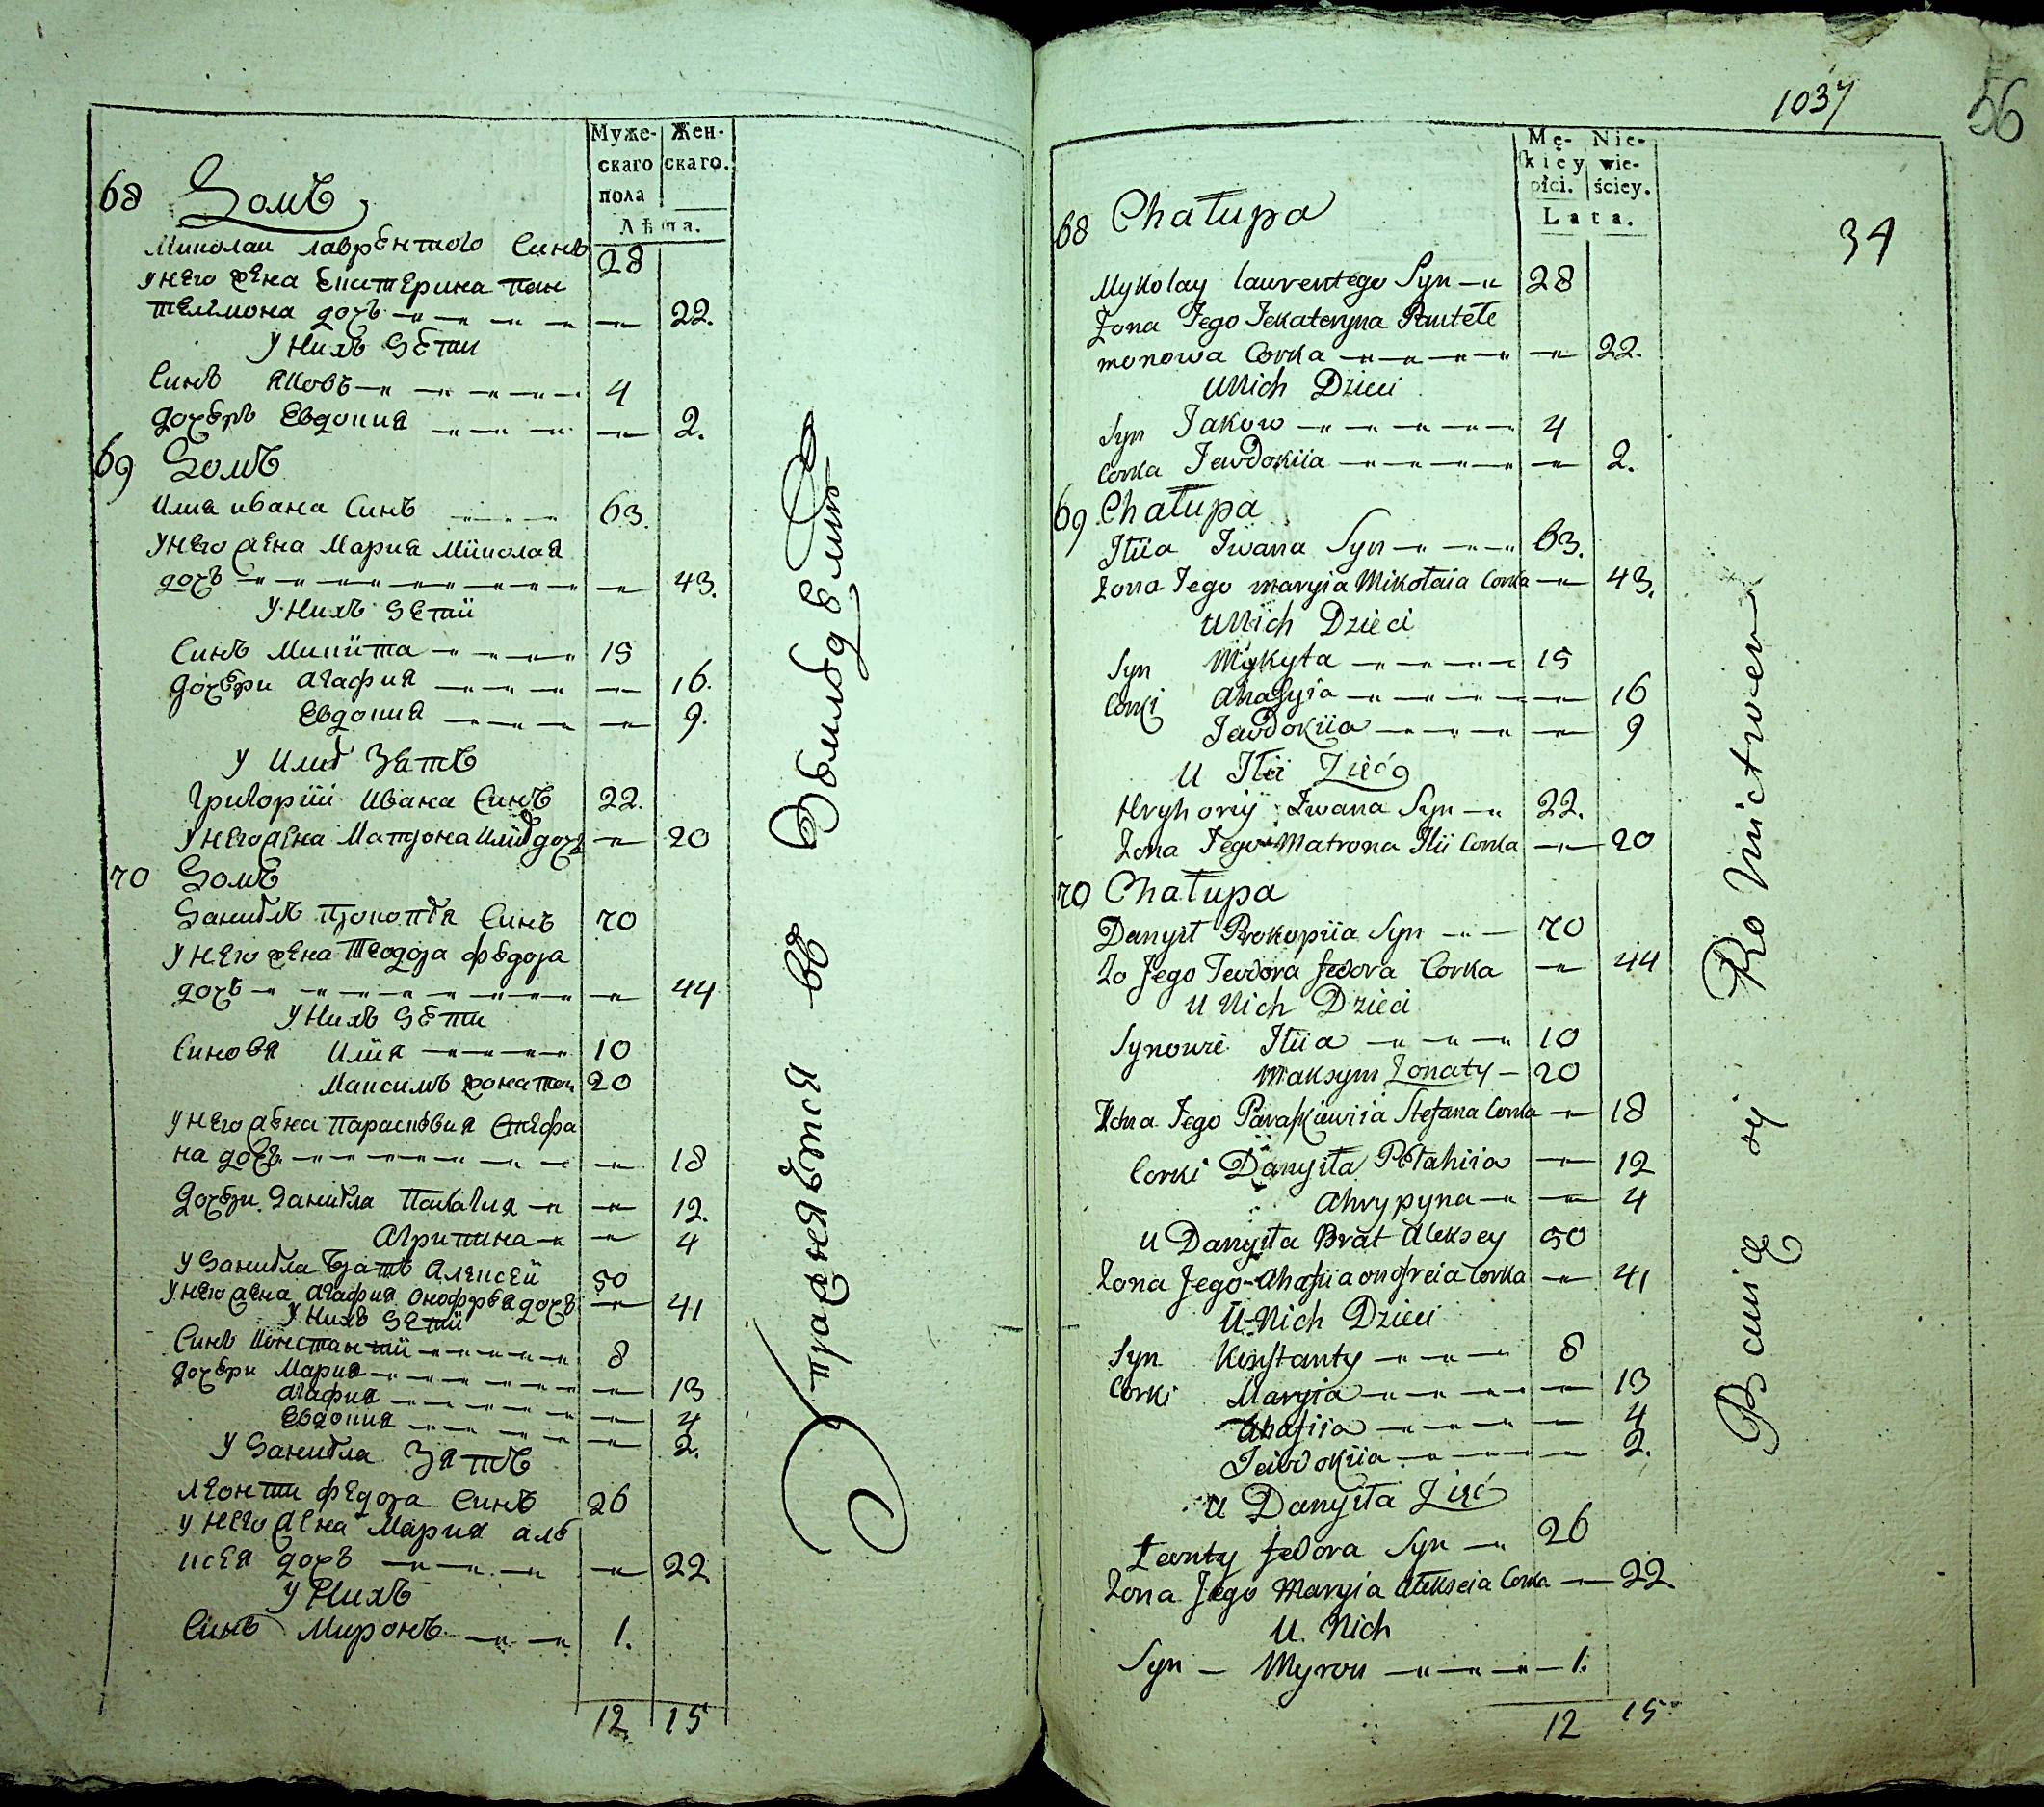 Муже- Жен-
скаго скаго.
пола
Лѣта.
68 Домъ
Миколаи лаврентого Синъ 28
У Него жена Екатерина пан
телимона дочъ 22.
У Нихъ Дети
Синъ Яковъ 4
дочеръ Евдокия 2.
69 Домъ
Илия ивана Синъ 63.
У Него жена Мария Миколая
дочъ 43.
У Нихъ Дети
Синъ Микита 15
дочери Агафия 16.
Евдокия 9.
У Илиѣ Зять
Григорий Ивана Синъ 22.
У Него жена Матрона Илиѣ дочъ 20
70 Домъ
Даниѣлъ Прокопѣя Синъ 70
У Него жена Теодора федора
дочъ 44
У Нихъ Дѣти
Синовя Илия 10
Максимъ жонатии 20
У Него жена Парасковия Стефа
на дочъ 18
дочери Даниѣла Палагия 12.
Агрипина 4
У Даниѣла Братъ Алексей 50
У Него жена Агафия Онофрѣя дочъ 41
У Нихъ Дети
Синъ Константий 8
дочери Мария 13
Агафия 4
Евдокия 2.
У Даниѣла Зять
Леонти федора Синъ 26
У Него жена Мария але
ксея дочъ 22
У Нихъ
Синъ Миронъ 1.
12 15
Упражняѣтся въ
1037
56
Mę- Nie-
kiey wie-
płci. ściey.
Lata.
34
68 Chałupa
Mykolay laurentego Syn 28
Zona Jego Jekateryna Pantełe
monowa Corka 22.
U Nich Dzieci
Syn Jakow 4
Corka Jewdokiia 2.
69 Chałupa
Iłiia Iwana Syn 63.
Zona Jego maryia Mikołaia Corka 43.
U Nich Dzieci
Syn Mykyta 15
Corki Ahafyia 16
Jewdokiia 9
U Iłii Zięć
Hryhoriy Iwana Syn 22.
Zona Jego Matrona Ilii Corka 20
70 Chałupa
Danyił Prokopiia Syn 70
Zo Jego Teodora fedora Corka 44
U Nich Dzieci
Synowie Iłiia 10
Maksym Zonaty 20
Zona Jego Paraskiewiia Stefana Corka 18
Corki Danyiła Pełahiia 12
Ahrypyna 4
U Danyiła Brat Aleksey 50
Zona Jego Ahafiia onofreia Corka 41
U Nich Dzieci
Syn Konstanty 8
Corki Maryia 13
Ahafiia 4
Jewdokiia 2.
U Danyiła Zięć
Łeonty fedora Syn 26
Zona Jego Maryia Alekseia Corka 22.
U Nich
Syn Myron 1.
12 15
Bawią się Rolnictwem